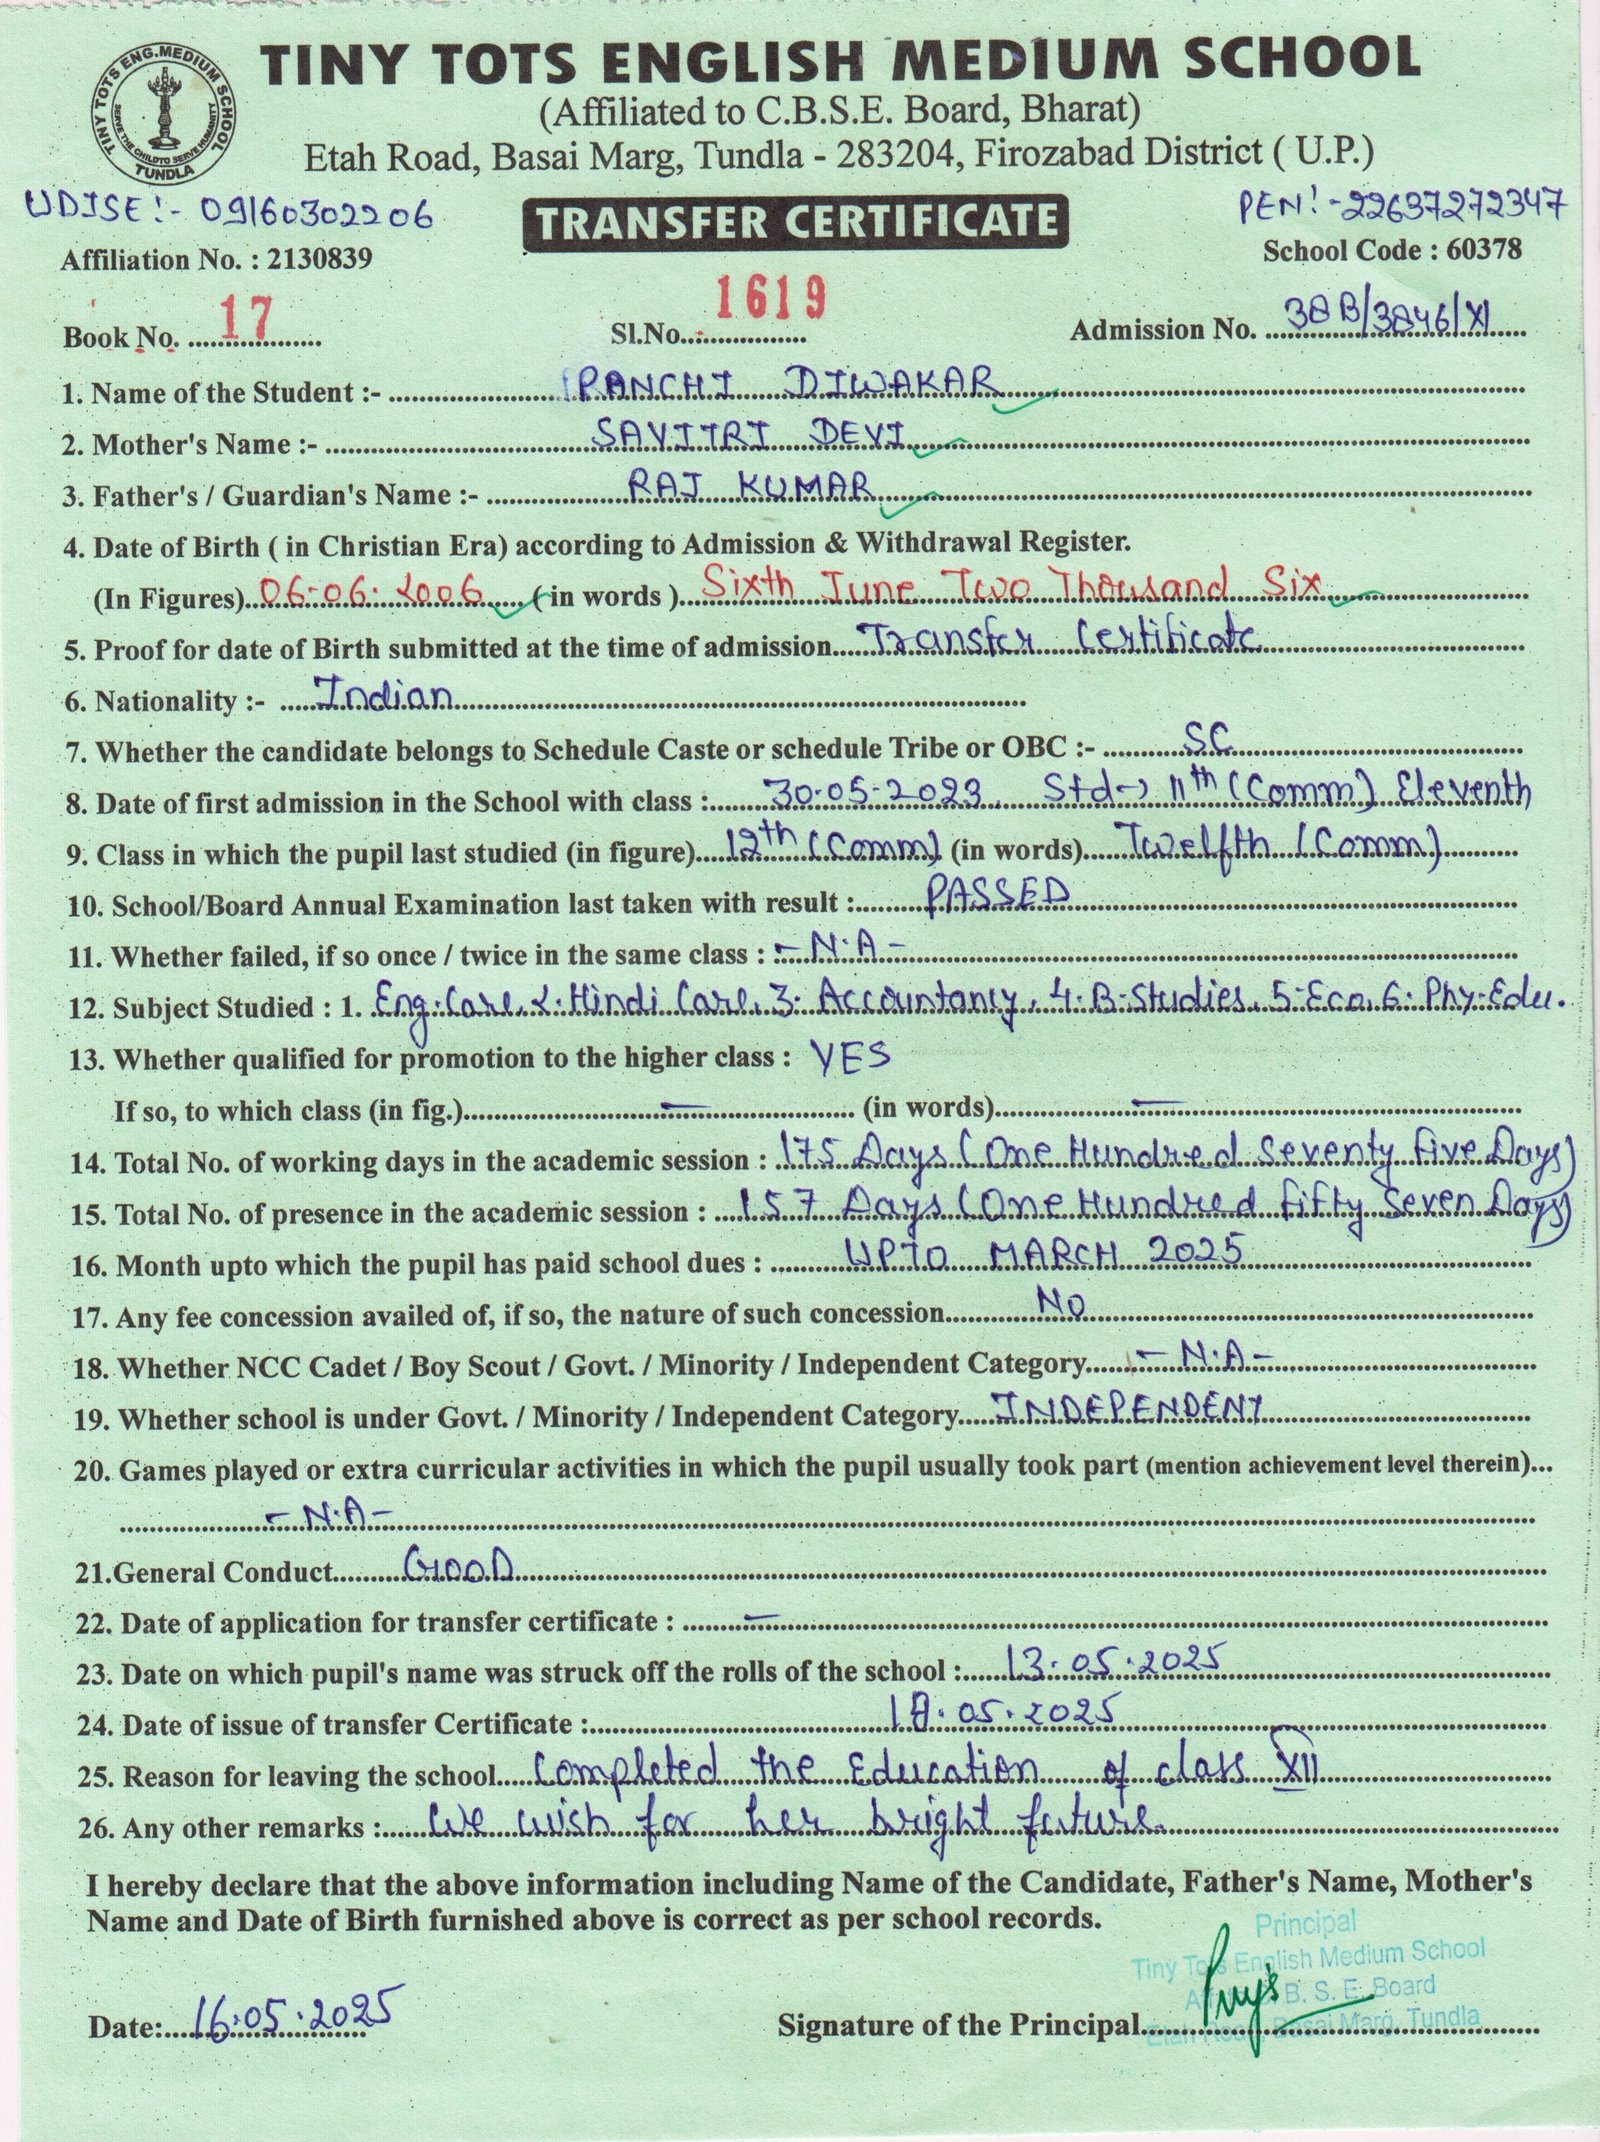 TINY TOTS ENG. MEDIUM SCHOOL
SERVE THE CHILD TO SERVE HUMANITY
TUNDLA
TINY TOTS ENGLISH MEDIUM SCHOOL
(Affiliated to C.B.S.E. Board, Bharat)
Etah Road, Basai Marg, Tundla - 283204, Firozabad District ( U.P.)
UDISE:- 09160302206 PEN:- 22637272347
TRANSFER CERTIFICATE
Affiliation No. : 2130839 School Code : 60378
Book No. 17 Sl.No. 1619 Admission No. 38B/3846/XI
1. Name of the Student :- PANCHI DIWAKAR
2. Mother's Name :- SAVITRI DEVI
3. Father's / Guardian's Name :- RAJ KUMAR
4. Date of Birth ( in Christian Era) according to Admission & Withdrawal Register.
(In Figures) 06-06-2006 (in words ) Sixth June Two Thousand Six
5. Proof for date of Birth submitted at the time of admission Transfer Certificate
6. Nationality :- Indian
7. Whether the candidate belongs to Schedule Caste or schedule Tribe or OBC :- SC
8. Date of first admission in the School with class : 30-05-2023, Std→ 11th (Comm) Eleventh
9. Class in which the pupil last studied (in figure) 12th (Comm) (in words) Twelfth (Comm)
10. School/Board Annual Examination last taken with result : PASSED
11. Whether failed, if so once / twice in the same class : - N.A -
12. Subject Studied : 1. Eng. Core, 2. Hindi Core, 3. Accountancy, 4. B-Studies, 5-Eco, 6. Phy-Edu.
13. Whether qualified for promotion to the higher class : YES
If so, to which class (in fig.) — (in words) —
14. Total No. of working days in the academic session : 175 Days (One Hundred Seventy Five Days)
15. Total No. of presence in the academic session : 157 Days (One Hundred Fifty Seven Days)
16. Month upto which the pupil has paid school dues : UPTO MARCH 2025
17. Any fee concession availed of, if so, the nature of such concession NO
18. Whether NCC Cadet / Boy Scout / Govt. / Minority / Independent Category - N.A -
19. Whether school is under Govt. / Minority / Independent Category INDEPENDENT
20. Games played or extra curricular activities in which the pupil usually took part (mention achievement level therein)...
- N.A -
21.General Conduct GOOD
22. Date of application for transfer certificate : —
23. Date on which pupil's name was struck off the rolls of the school : 13.05.2025
24. Date of issue of transfer Certificate : .05.2025
25. Reason for leaving the school Completed the Education of class XII
26. Any other remarks : We wish for her bright future.
I hereby declare that the above information including Name of the Candidate, Father's Name, Mother's
Name and Date of Birth furnished above is correct as per school records.
Principal
Tiny Tots English Medium School
B. S. E. Board
Etah Road, Basai Marg, Tundla
Date: 16.05.2025 Signature of the Principal